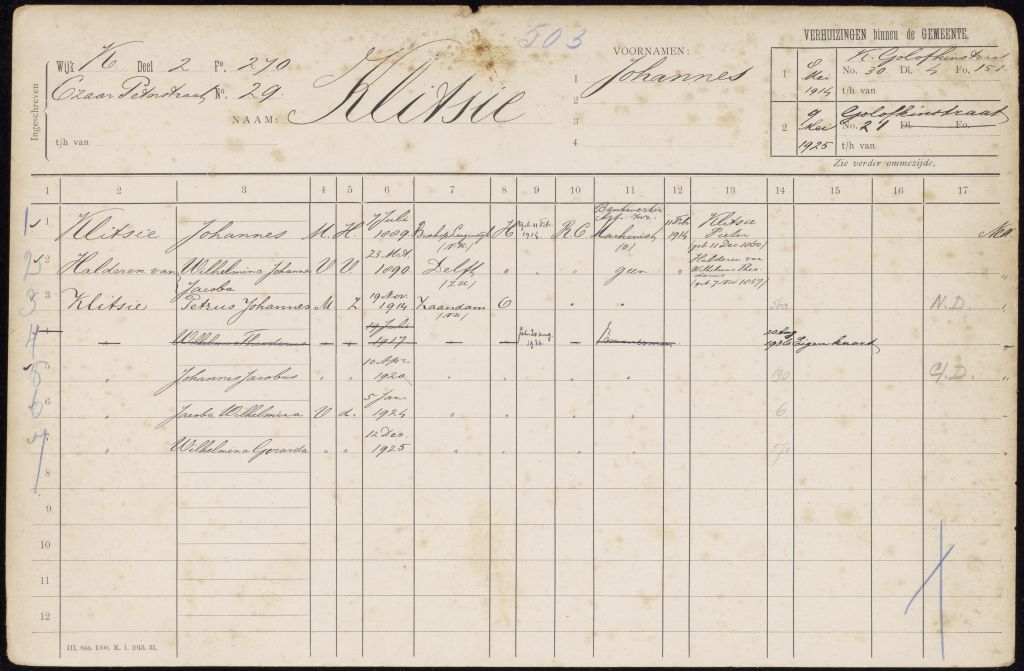 503
VERHUIZINGEN binnen de GEMEENTE.
Ingeschreven
Wijk K Deel 2 Fo. 270
Czaar Peterstraat No. 29.
t/h van
NAAM: Klitsie
VOORNAMEN:
1 Johannes
2
3
4
1 8 Mei 1914 K. Golofkinstraat
No. 30 Dl. 4 Fo. 151
t/h van
2 9 Mei 1925 Golofkinstraat
No. 21 Dl. Fo.
t/h van
Zie verder ommezijde.
1 2 3 4 5 6 7 8 9 10 11 12 13 14 15 16 17
1 Klitsie Johannes M. H 7 Juli 1889 H 11 Feb. 1914 R.C. Bankwerker Machinist 11 Feb 1914 Klitsie Pieter geb 11 Dec 1860
2 Halderen van Wilhelmina Johanna Jacoba V V 1890 Delft " " " geen " Halderen van Wilhelmus Theodorus
3 Klitsie Petrus Johannes M Z 19 Nov. 1914 Zaandam O " " " N.D.
4 " Wilhelm Theodorus " " 19 Juli 1917 " " " Timmerman 1936 Eigen kaart
5 " Johannes Jacobus " " 10 Apr 1920 " " " " 130 "
6 Jacoba Wilhelmina V d. 5 Jan. 1924 " " " " 6
7 " Wilhelmina Gerarda " " 12 Dec. 1925 " " " "
8
9
10
11
12
III. Sta. 1900. K. 1. 1913. 31.